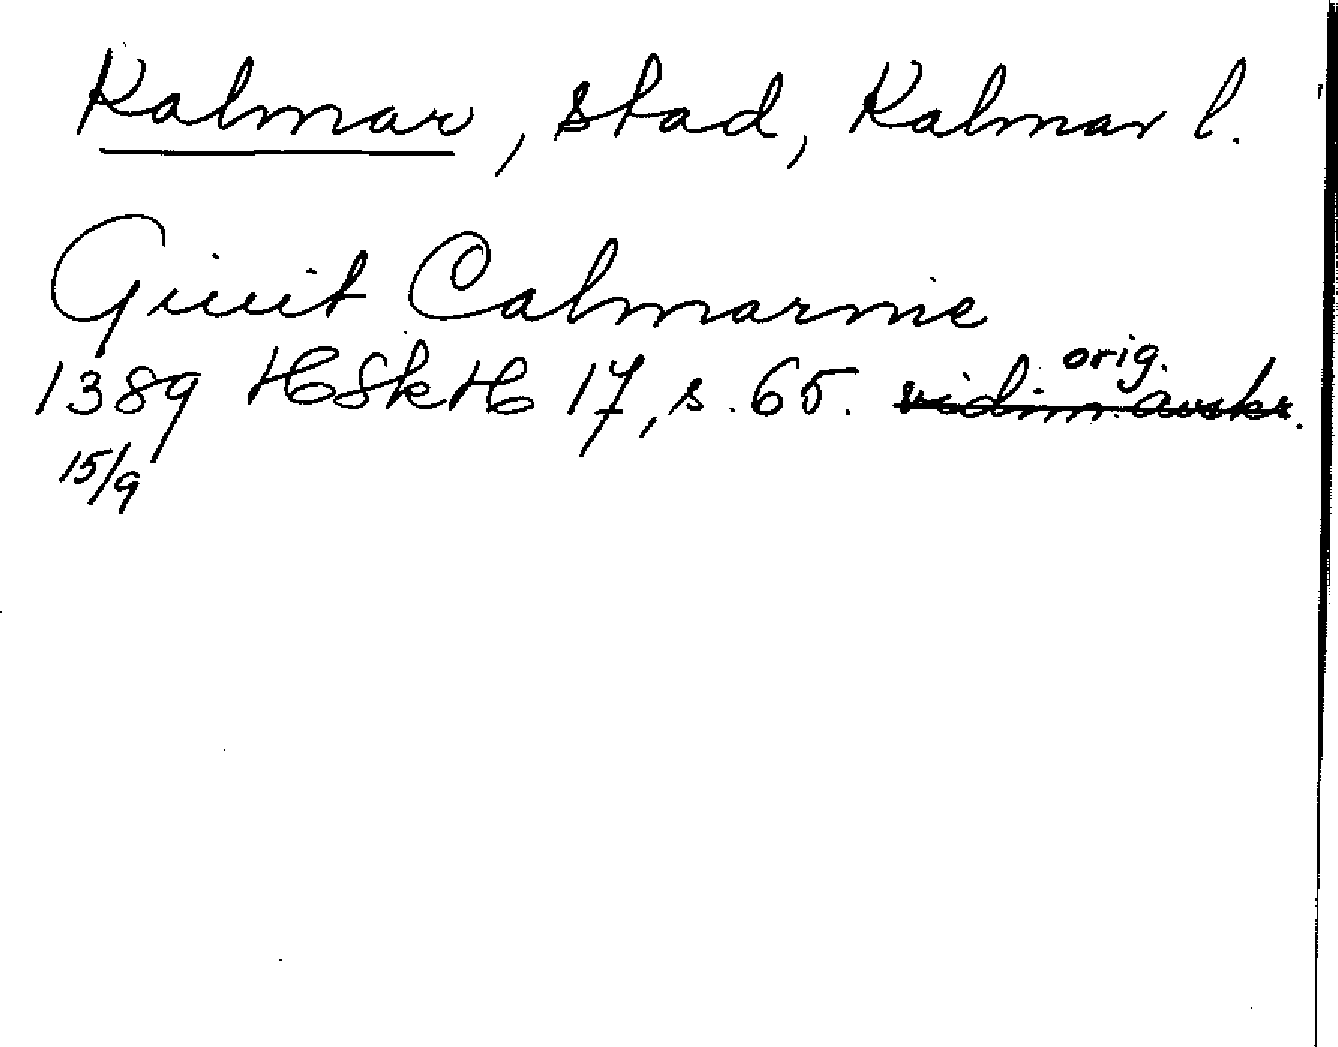 Kalmar, stad, Kalmar l.
Giuit Calmarnie
orig.
1389 HSkH 17, s. 65. vidim. avskr.
15/9